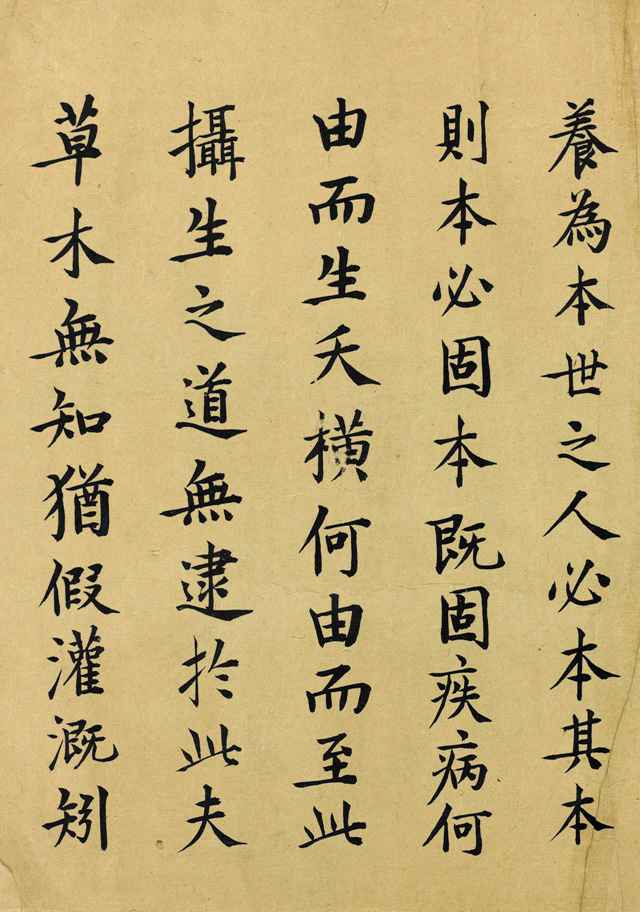 養為本世之人必本其本
則本必固本既固疾病何
由而生夭橫何由而至此
攝生之道無逮於此夫
草木無知猶假灌溉矧